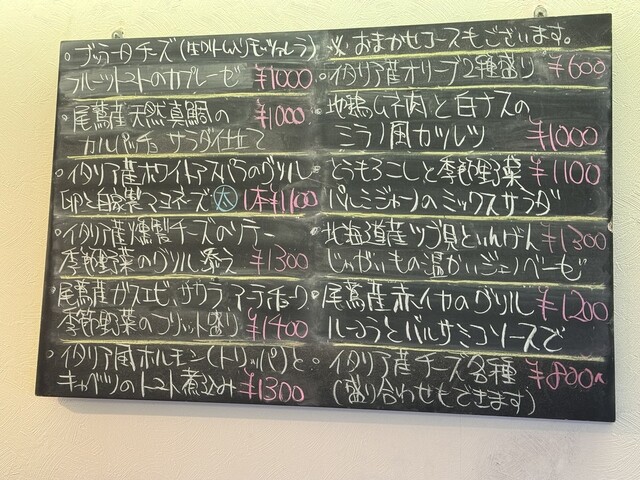 。ブッラータチーズ(生クリーム入りモッツァレラ)
フルーツトマトのカプレーゼ ¥1000
。尾鷲産天然真鯛の ¥1000
カルパッチョ サラダ仕立て
。イタリア産ホワイトアスパラのグリル
卵と自家製マヨネーズ 太 1本¥1100
。イタリア産燻製チーズのソテー
季節野菜のグリル添え ¥1300
。尾鷲産ガスエビ、サワラ、アーティチョーク
季節野菜のフリット盛り ¥1400
。イタリア風ホルモン(トリッパ)と
キャベツのトマト煮込み ¥1300
※おまかせコースもございます。
。イタリア産オリーブ2種盛り ¥600
。地鶏ムネ肉と白ナスの
ミラノ風カツレツ ¥1000
。とうもろこしと季節野菜 ¥1100
パルミジャーノのミックスサラダ
。北海道産ツブ貝といんげん ¥1300
じゃがいもの温かいジェノベーゼ
。尾鷲産赤イカのグリル ¥1200
ルーコラとバルサミコソースで
。イタリア産チーズ各種 ¥800〜
(盛り合わせもできます)